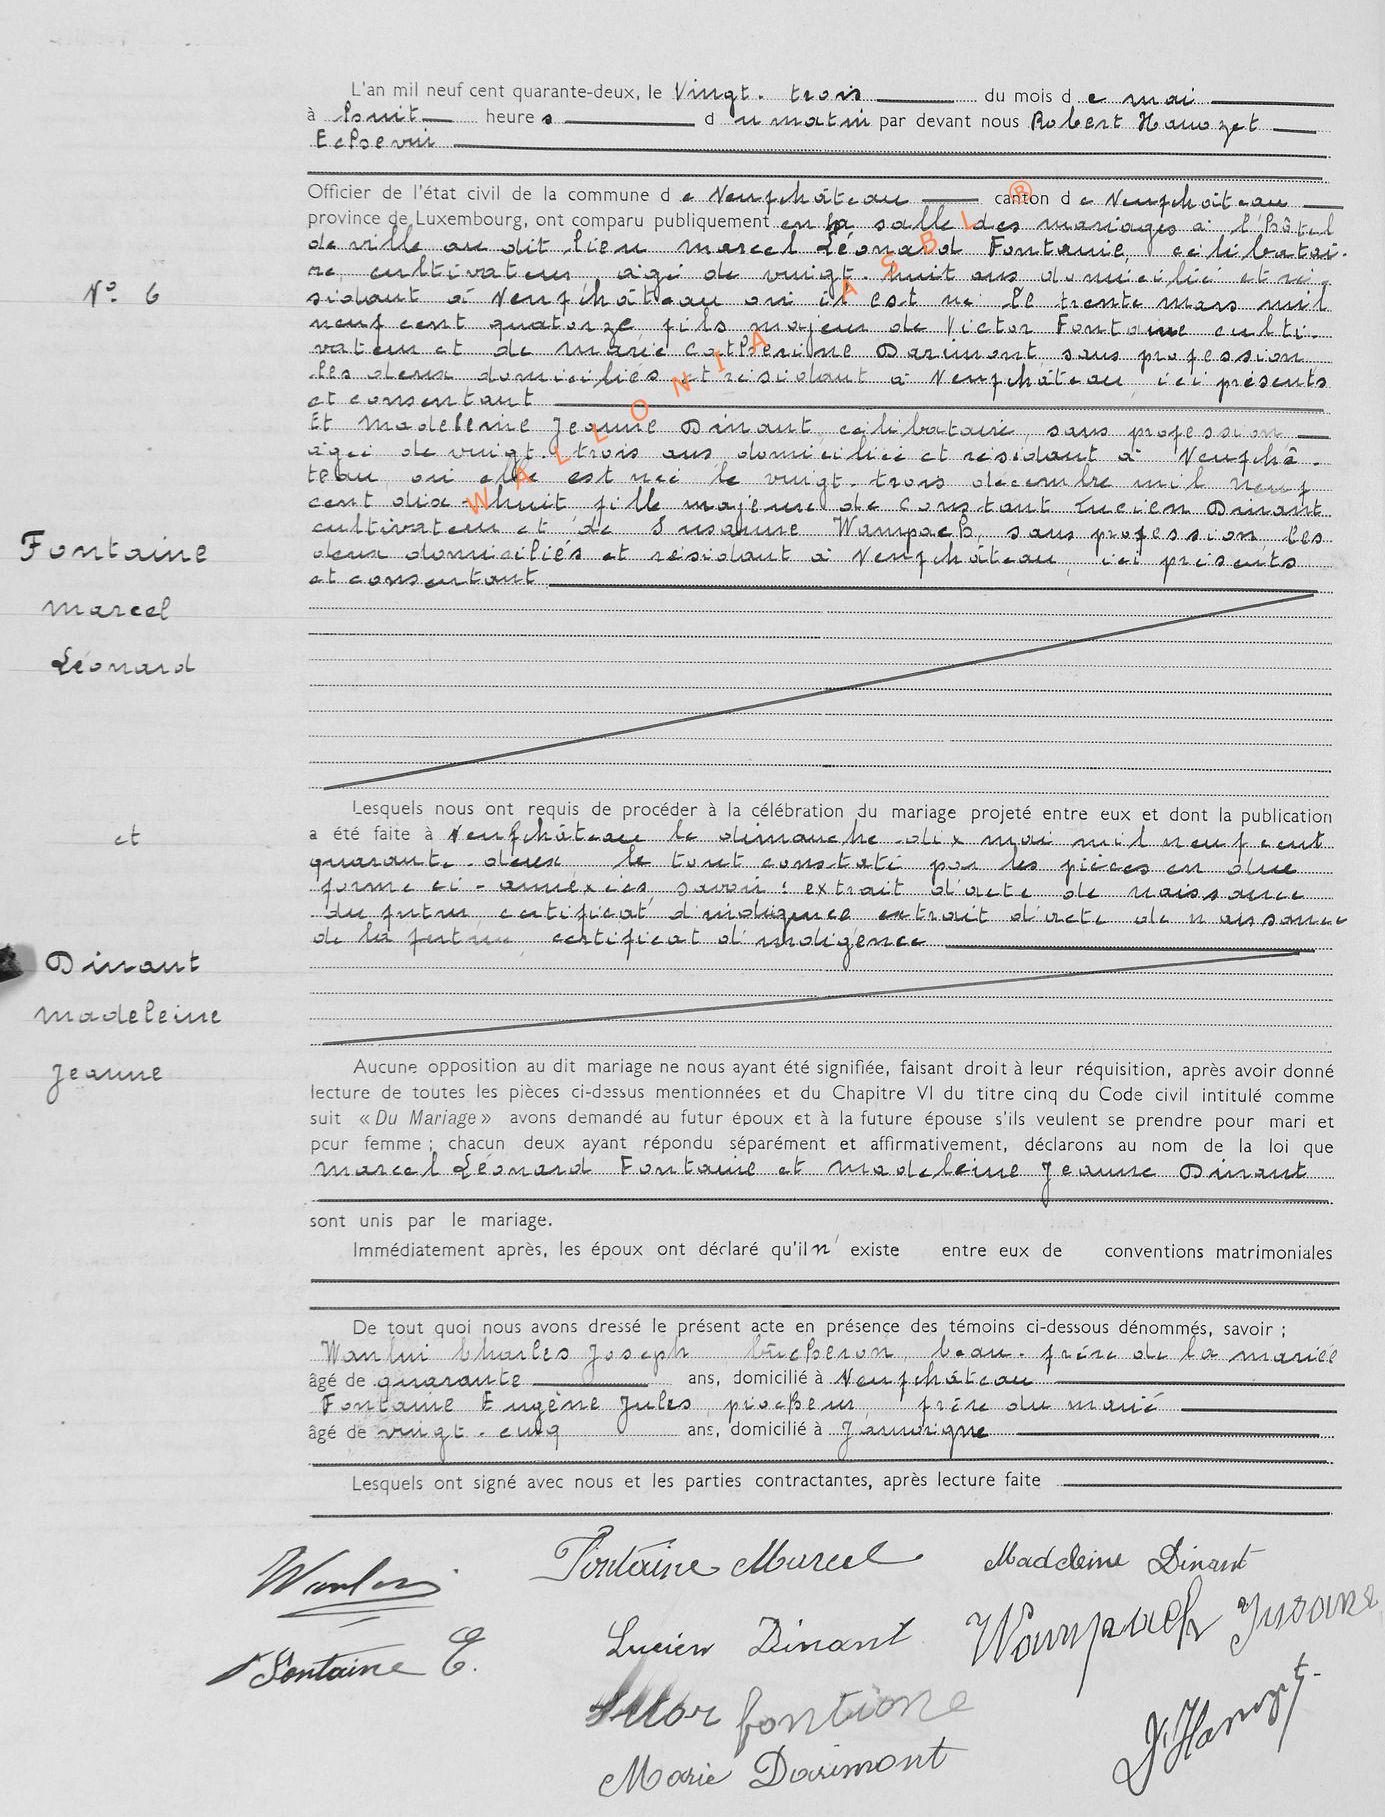 L'an mil neuf cent quarante-deux, le Vingt-trois du mois de mai
à huit heures du matin par devant nous Robert Hanozet
Echevin
Officier de l'état civil de la commune de Neufchâteau canton de Neufchâteau
province de Luxembourg, ont comparu publiquement en la salle des mariages à l'hôtel
de ville au dit lieu Marcel Léonard Fontaine, célibatai-
re, cultivateur, âgé de vingt-huit ans domicilié et ré-
N° 6
sidant à Neufchâteau où il est né le trente mars mil
neuf cent quatorze fils majeur de Victor Fontaine culti-
vateur et de Marie Catherine Darimont sans profession
les deux domiciliés et résidant à Neufchâteau, ici présents
et consentant
Et Madeleine Jeanne Dinant, célibataire, sans profession
âgée de vingt-trois ans domiciliée et résidant à Neufchâ-
teau, où elle est née le vingt-trois décembre mil neuf
cent dix-huit fille majeure de Constant Lucien Dinant
cultivateur et de Susanne Wampach, sans profession les
deux domiciliés et résidant à Neufchâteau, ici présents
et consentant
WALLONIA ASBL ®
Fontaine
Marcel
Léonard
Lesquels nous ont requis de procéder à la célébration du mariage projeté entre eux et dont la publication
a été faite à Neufchâteau le dimanche dix mai mil neuf cent
et
quarante-deux le tout constaté par les pièces en due
forme ci-annexées, savoir : extrait d'acte de naissance
du futur certificat d'indigence extrait d'acte de naissance
de la future, certificat d'indigence
Dinant
Madeleine
Jeanne
Aucune opposition au dit mariage ne nous ayant été signifiée, faisant droit à leur réquisition, après avoir donné
lecture de toutes les pièces ci-dessus mentionnées et du Chapitre VI du titre cinq du Code civil intitulé comme
suit « Du Mariage » avons demandé au futur époux et à la future épouse s'ils veulent se prendre pour mari et
pour femme ; chacun deux ayant répondu séparément et affirmativement, déclarons au nom de la loi que
Marcel Léonard Fontaine et Madeleine Jeanne Dinant
sont unis par le mariage.
Immédiatement après, les époux ont déclaré qu'il n'existe entre eux de conventions matrimoniales
De tout quoi nous avons dressé le présent acte en présence des témoins ci-dessous dénommés, savoir ;
Wanlin Charles Joseph bûcheron, beau-frère de la mariée
âgé de quarante ans, domicilié à Neufchâteau
Fontaine Eugène Jules, piocheur, frère du marié
âgé de vingt-cinq ans, domicilié à Jamoigne
Lesquels ont signé avec nous et les parties contractantes, après lecture faite
Wanlin
Fontaine Marcel
Madeleine Dinant
Fontaine E.
Lucien Dinant
Wampach Susane
fontione
Marie Darimont